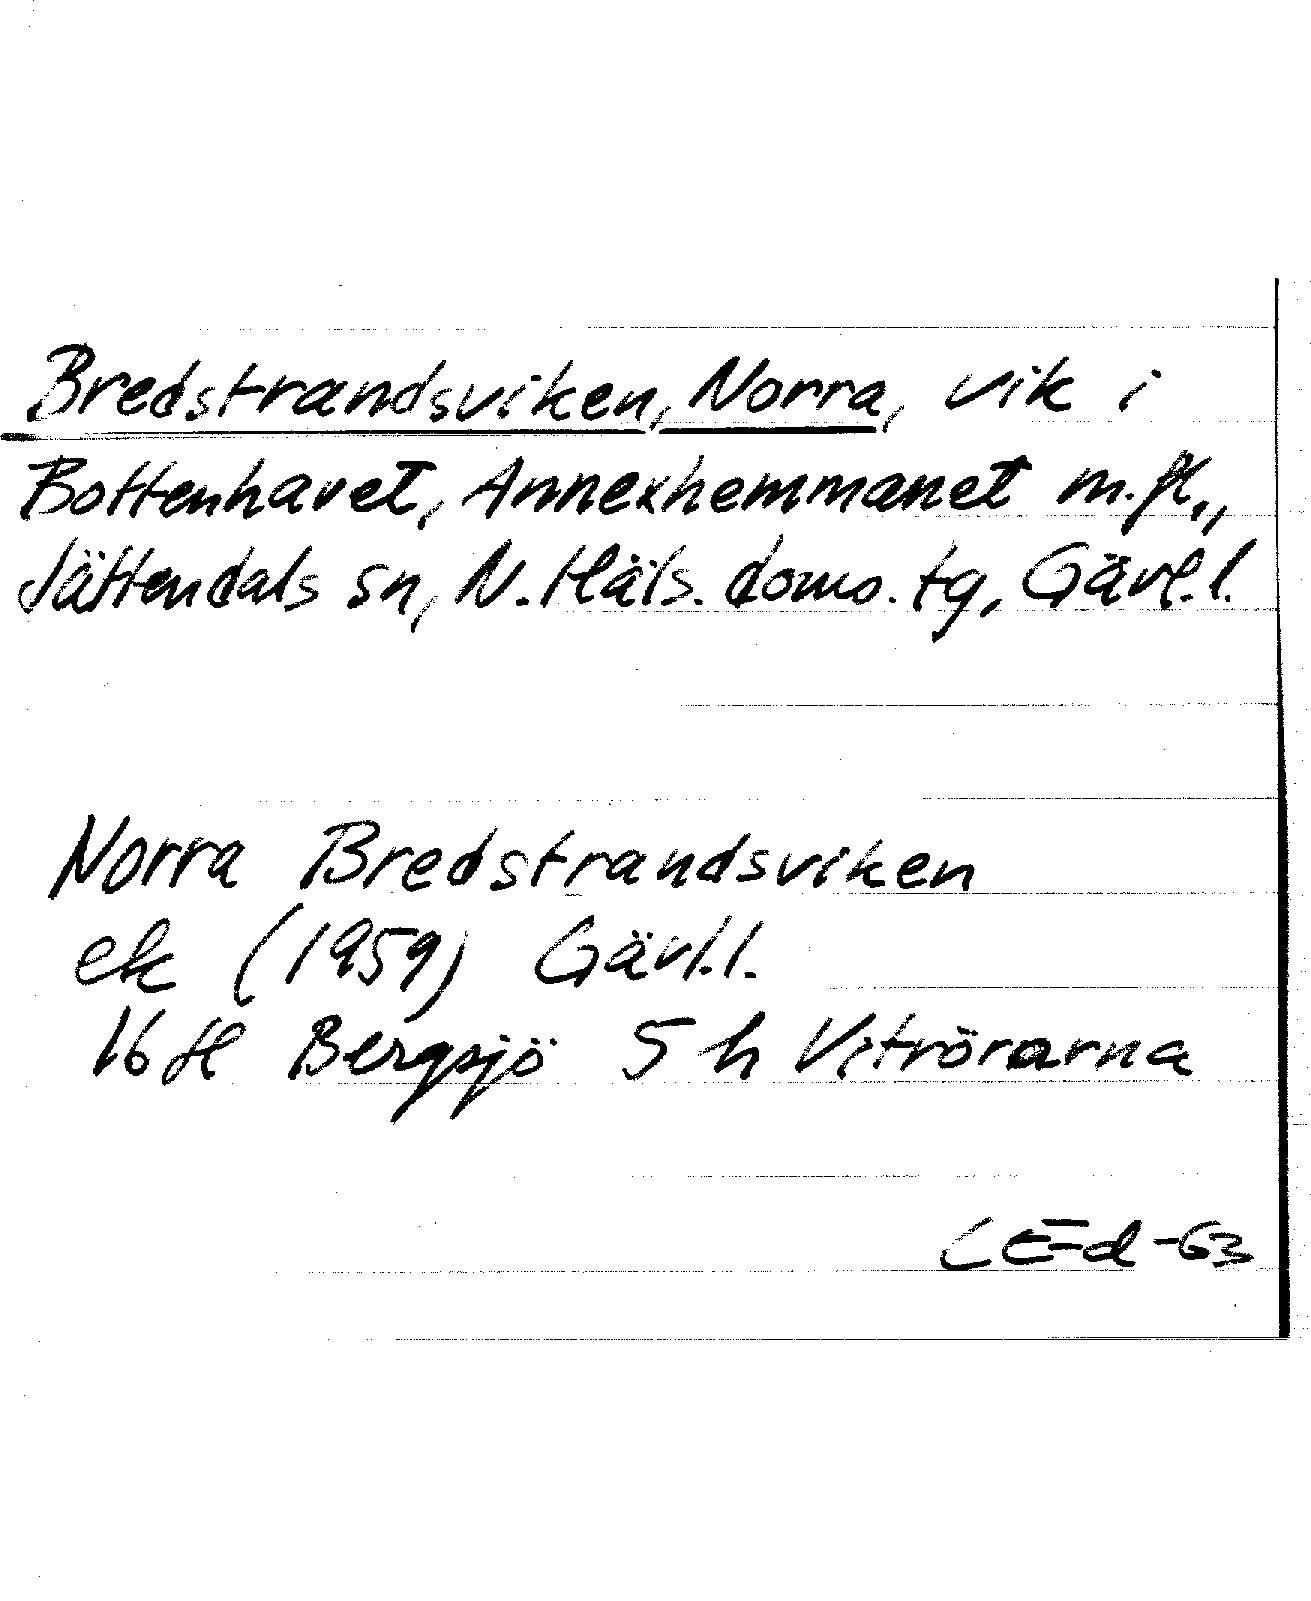 Bredstrandsviken, Norra, vik i
Bottenhavet, Annexhemmanet m.fl.,
Jättendals sn, N. Häls. doms. tg, Gävl.l.
Norra Bredstrandsviken
ek (1959) Gävl.l.
16 H Bergsjö 5 h Vitrörarna
CEd -63